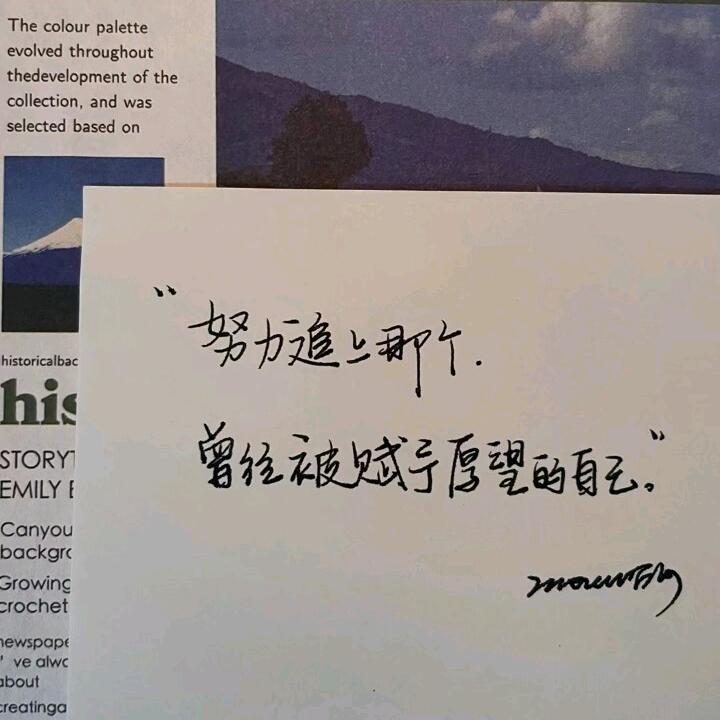 The colour palette
evolved throughout
thedevelopment of the
collection, and was
selected based on
historicalbac
his
STORYT
EMILY E
Canyou
backgro
Growing
crochet
newspape
' ve alwa
about
creatinga
“努力追上那个.
曾经被赋予厚望的自己。”